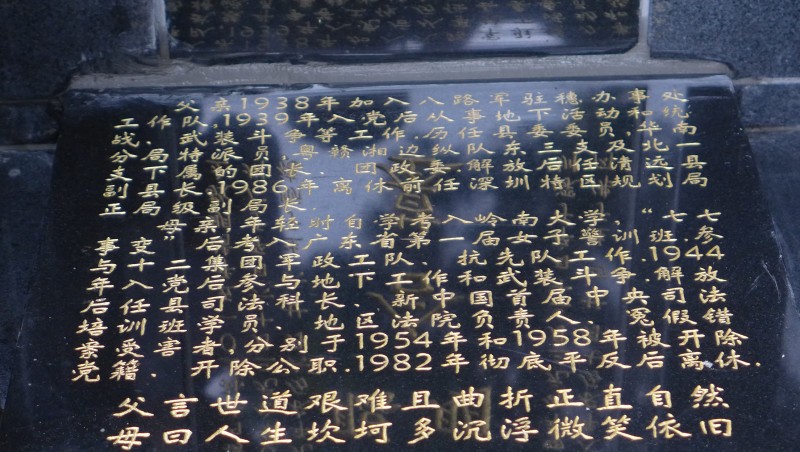 父亲1938年加入八路军驻穗办事处
工作,1939年入党后从事地下活动和统
战、武装斗争等工作.历任县委委员,华南
分局特派员,粤赣湘边纵队东三支及北一
支下属的团长,团政委.解放后任清远县
副县长,1986年离休前任深圳特区规划局
正局级副局长.
母亲年轻时自学考入岭南大学,“七七
事变”后考入广东省第一届女子警训班.参
与十二集团军政工队、抗先队工作.1944
年入党后参与地下工作和武装斗争.解放
后任县司法科长、新中国首届中央司法
培训班学员,地区法院负责人.冤假错
案受害者,分别于1954年和1958年被开除
党籍,开除公职.1982年彻底平反后离休.
父言世道艰难且曲折正直自然
母曰人生坎坷多沉浮微笑依旧